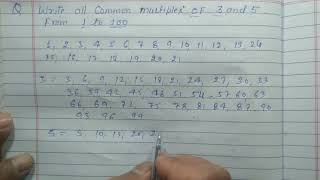 Q Write all Common multiples OF 3 and 5
From 1 to 100
1, 2, 3, 4, 5, 6, 7, 8, 9, 10, 11, 12, 13, 14
15, 16, 17, 18, 19, 20, 21
3 = 3, 6, 9, 12, 15, 18, 21, 24, 27, 30, 33
36, 39, 42, 45, 48, 51, 54, 57, 60, 63
66, 69, 72, 75, 78, 81, 84, 87, 90
93, 96, 99
5 = 5, 10, 15, 20, 2